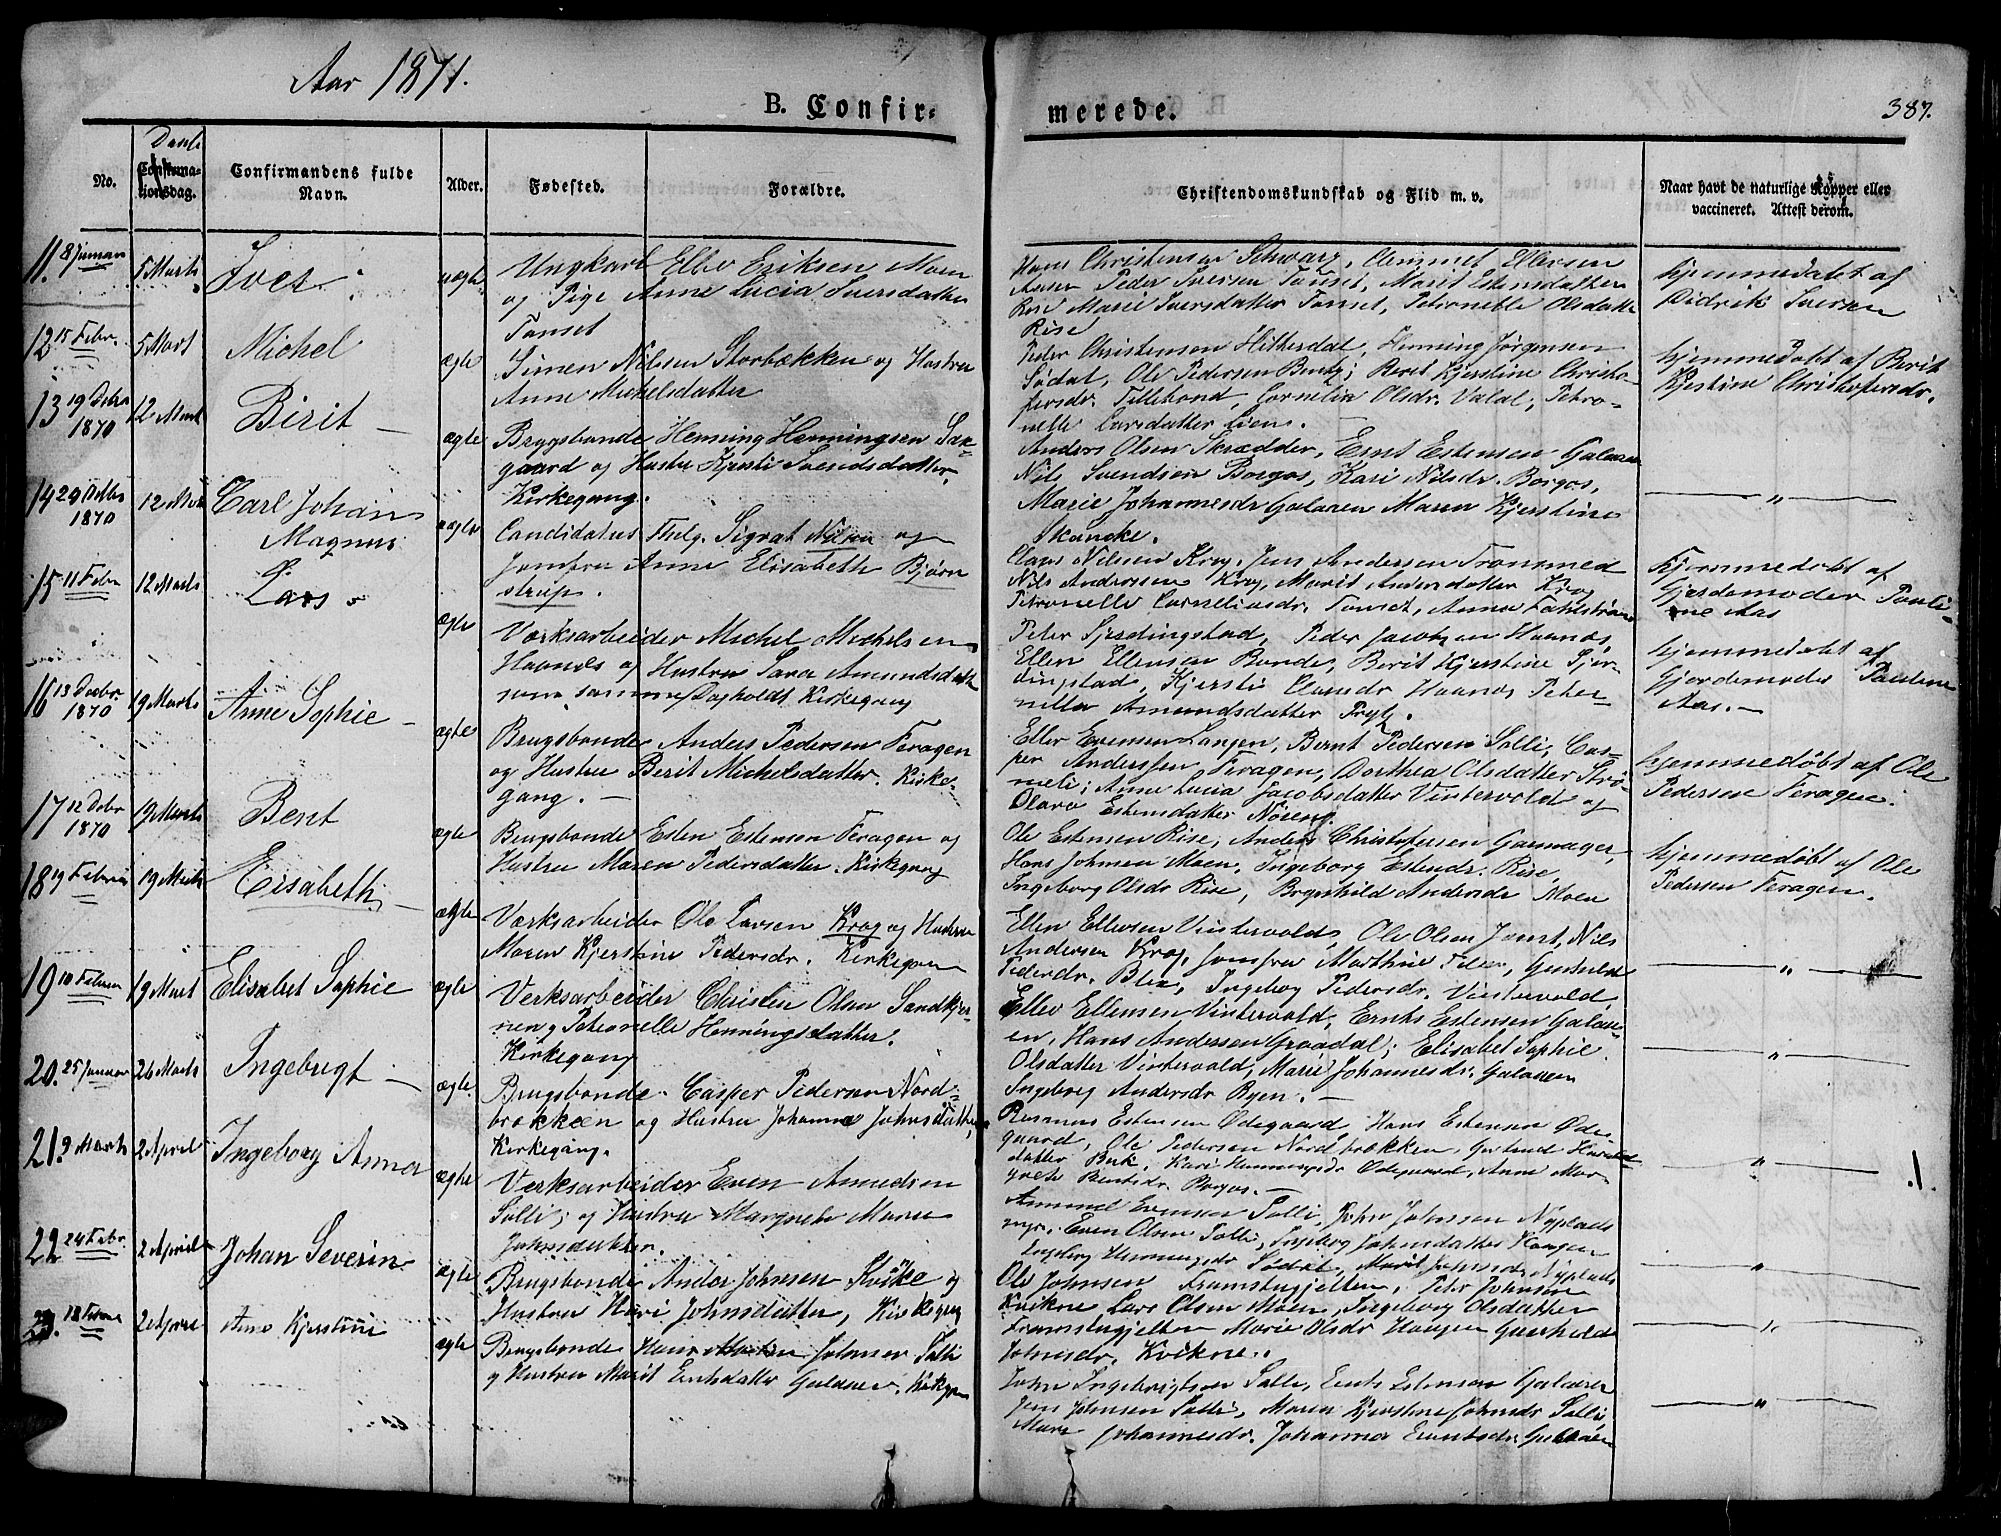 Aar 1871.
B. Confir-
merede.
387.
No.
Daabs
Confirma-
tionsdag.
Confirmandens fulde
Navn.
Alder.
Fødested.
Forældre.
Christendomskundskab og Flid m. v.
Naar havt de naturlige Kopper eller
vaccineret. Attest derom.
11. 8 Januar
5 Marts
Iver
uægte
Ungkarl Ellev Eriksen Moen
og Pige Anne Lucia Iversdatter
Tamset
Hans Christensen Schwarz, Ammut Ellevsen
Aasen Peder Iversen Tamset, Marit Estensdatter
Rose Marie Iversdatter Tamset, Petronelle Olsdatter
Rise
hjemmedøbt af
Didrik Iversen
12 15 Febr.
5 Mart
Michel
ægte
Simen Nilsen Storbækken og Hustru
Anne Michelsdatter
Peder Christensen Hitterdal, Henning Jørgensen
Sødal, Ole Pedersen Bentz; Berit Kjerstine Christo-
fersdr. Lillebond, Cornelia Olsdr. Valal, Petro-
nelle Larsdatter Lien.
hjemmedøbt af Berit
Kjestine Christofersdr.
13 19 Debr
1870
12 Mart
Birit
ægte
Brygsbonde Henning Henningsen Sax-
gaard og Hustru Kjersti Svendsdatter.
Kirkegang.
Anders Olsen Skrædder, Ernt Estensen Galaaen
Nils Svendsen Borgos, Kari Nilsdr. Borgos,
Marie Johannesdr Galaaen Maren Kjerstine
Skancke.
"
14 29 Debr
1870
12 Mart
Carl Johan
Magnus
uægte
Candidatus Theolg. Sigvat Nilsen og
Jomfru Anne Elisabeth Bjørn
strup.
Claus Nilsen Krog, Jens Andersen Trønmed
Nils Anderssen Krog, Marit Andersdatter Krog
Petronelle Corneliusdr. Tamset, Anna Fahlstrøm
hjemmedøbt af
Gjordemoder Pauli-
ne Aas
15 11 Febr
12 Marts
Lars
ægte
Værksarbeider Michel Michelsen
Haanes og Hustru Sara Amundsdatter
som samme Dag holdt Kirkegang
Peter Sjerdingstad, Peder Jacobsen Haanes,
Ellen Ellensen Bonde, Berit Kjerstine Sjer-
dingstad, Kjersti Clausdr Haanes Petro-
nelle Amundsdatter Prytz.
hjemmedøbt af
Gjordemoder Pauline
Aas.
16 13 Decbr
1870
19 Marts
Anne Sophie
ægte
Brugsbonde Anders Pedersen Feragen
og Hustru Berit Michelsdatter. Kirke-
gang.
Ellev Evensen Langen, Bernt Pedersen Solli, Cas-
per Anderssen Feragen, Dorthea Olsdatter Strø-
meli; Anne Lucia Jacobsdatter Vintervold og
Olava Estensdatter Nøseng.
hjemmedøbt af Ole
Pedersen Feragen.
17 12 Debr
1870
19 Marts
Bent
ægte
Brugsbonde Esten Estensen Feragen og
Hustru Maren Pedersdatter. Kirkegang
Ole Estensen Rise, Anders Christofersen Garmager,
Hans Johnsen Moen, Ingeborg Estensdr. Rise,
Ingeborg Olsdr Rise, Brynhild Andersdr Moen
hjemmedøbt af Ole
Pedersen Feragen.
18 9 Februar
19 Marts
Elisabeth
ægte
Værksarbeider Ole Larsen Krog og Hustru
Maren Kjerstine Pedersdr. Kirkegang
Ellen Ellensen Vintervold, Ole Olsen Jamt, Nils
Andersen Krog, Jomfru Marthine Feler, Gunhild
Pedersdr. Blix, Ingeborg Pedersdr. Vintervold
"
19 10 Februar
19 Mart
Elisabet Sophie
ægte
Verksarbeider Christen Olsen Sandkjer-
nen og Petronelle Henningsdatter.
Kirkegang
Ellev Ellensen Vintervold, Ernts Estensen Galaa-
en, Hans Andersen Graadal; Elisabet Sophie
Olsdatter Vintervold, Marie Johannesdr. Galaaen
Ingeborg Andersdr Ryen.
"
20. 25 Januar
26 Marts
Ingebrigt
ægte
Brugsbonde Casper Pedersen Nord-
brækken og Hustru Johanne Johnsdatter
Kirkegang.
Rasmus Estensen Ødegaard, Hans Estensen Øde-
gaard, Ole Pedersen Nordbrækken, Gertrud Harald-
datter Bek, Kari Henningsdr Ødegaard, Anne Mar-
grete Bentsdr. Borgos.
"
1.
21. 9 Marts
2 April
Ingeborg Anna
ægte
Verksarbeider Even Amundsen
Solli, og Hustru Margrete Marie
Johnsdatter.
Ammund Evensen Solli, John Johnsen Nyplads
myr. Even Olsen Solli, Ingeborg Johnsdatter Haugen
Ingeborg Henningsdr Sødal, Marit Johnsdr Nyplads
"
22 24 Febr.
2 April
Johan Severin
ægte
Brugsbonde Andor Johnsen Kvikne og
Hustru Kari Johnsdatter, Kirkegang
Ole Johnsen Framstugjelten, Peter Johnsen
Kvikne Lars Olsen Moen, Ingeborg Olsdatter
Framstugjelten Marie Olsdr Haugen Gunhild
Johnsdr. Kvikne.
"
23. 18 Februar
2 April
Anne Kjerstine
ægte
Brugsbonde Hans Martin Johnsen Solli
og Hustru Marit Erntsdatter Galaaen, Kirkegang
John Ingebrigtsen Solli, Ernts Estensen Galaaen
Jens Johnsen Solli, Maren Kjerstine Johnsdr Solli
Mari Johannesdr. Johanna Erntsdr. Galaaen
"